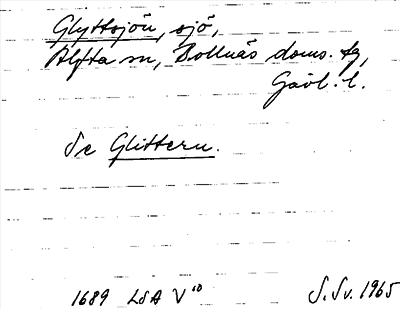 Glyttsjön, sjö,
Alfta sn, Bollnäs doms. tg,
Gävl. l.
Se Glittern.
1689 LSA V¹⁰ S. Sv. 1965